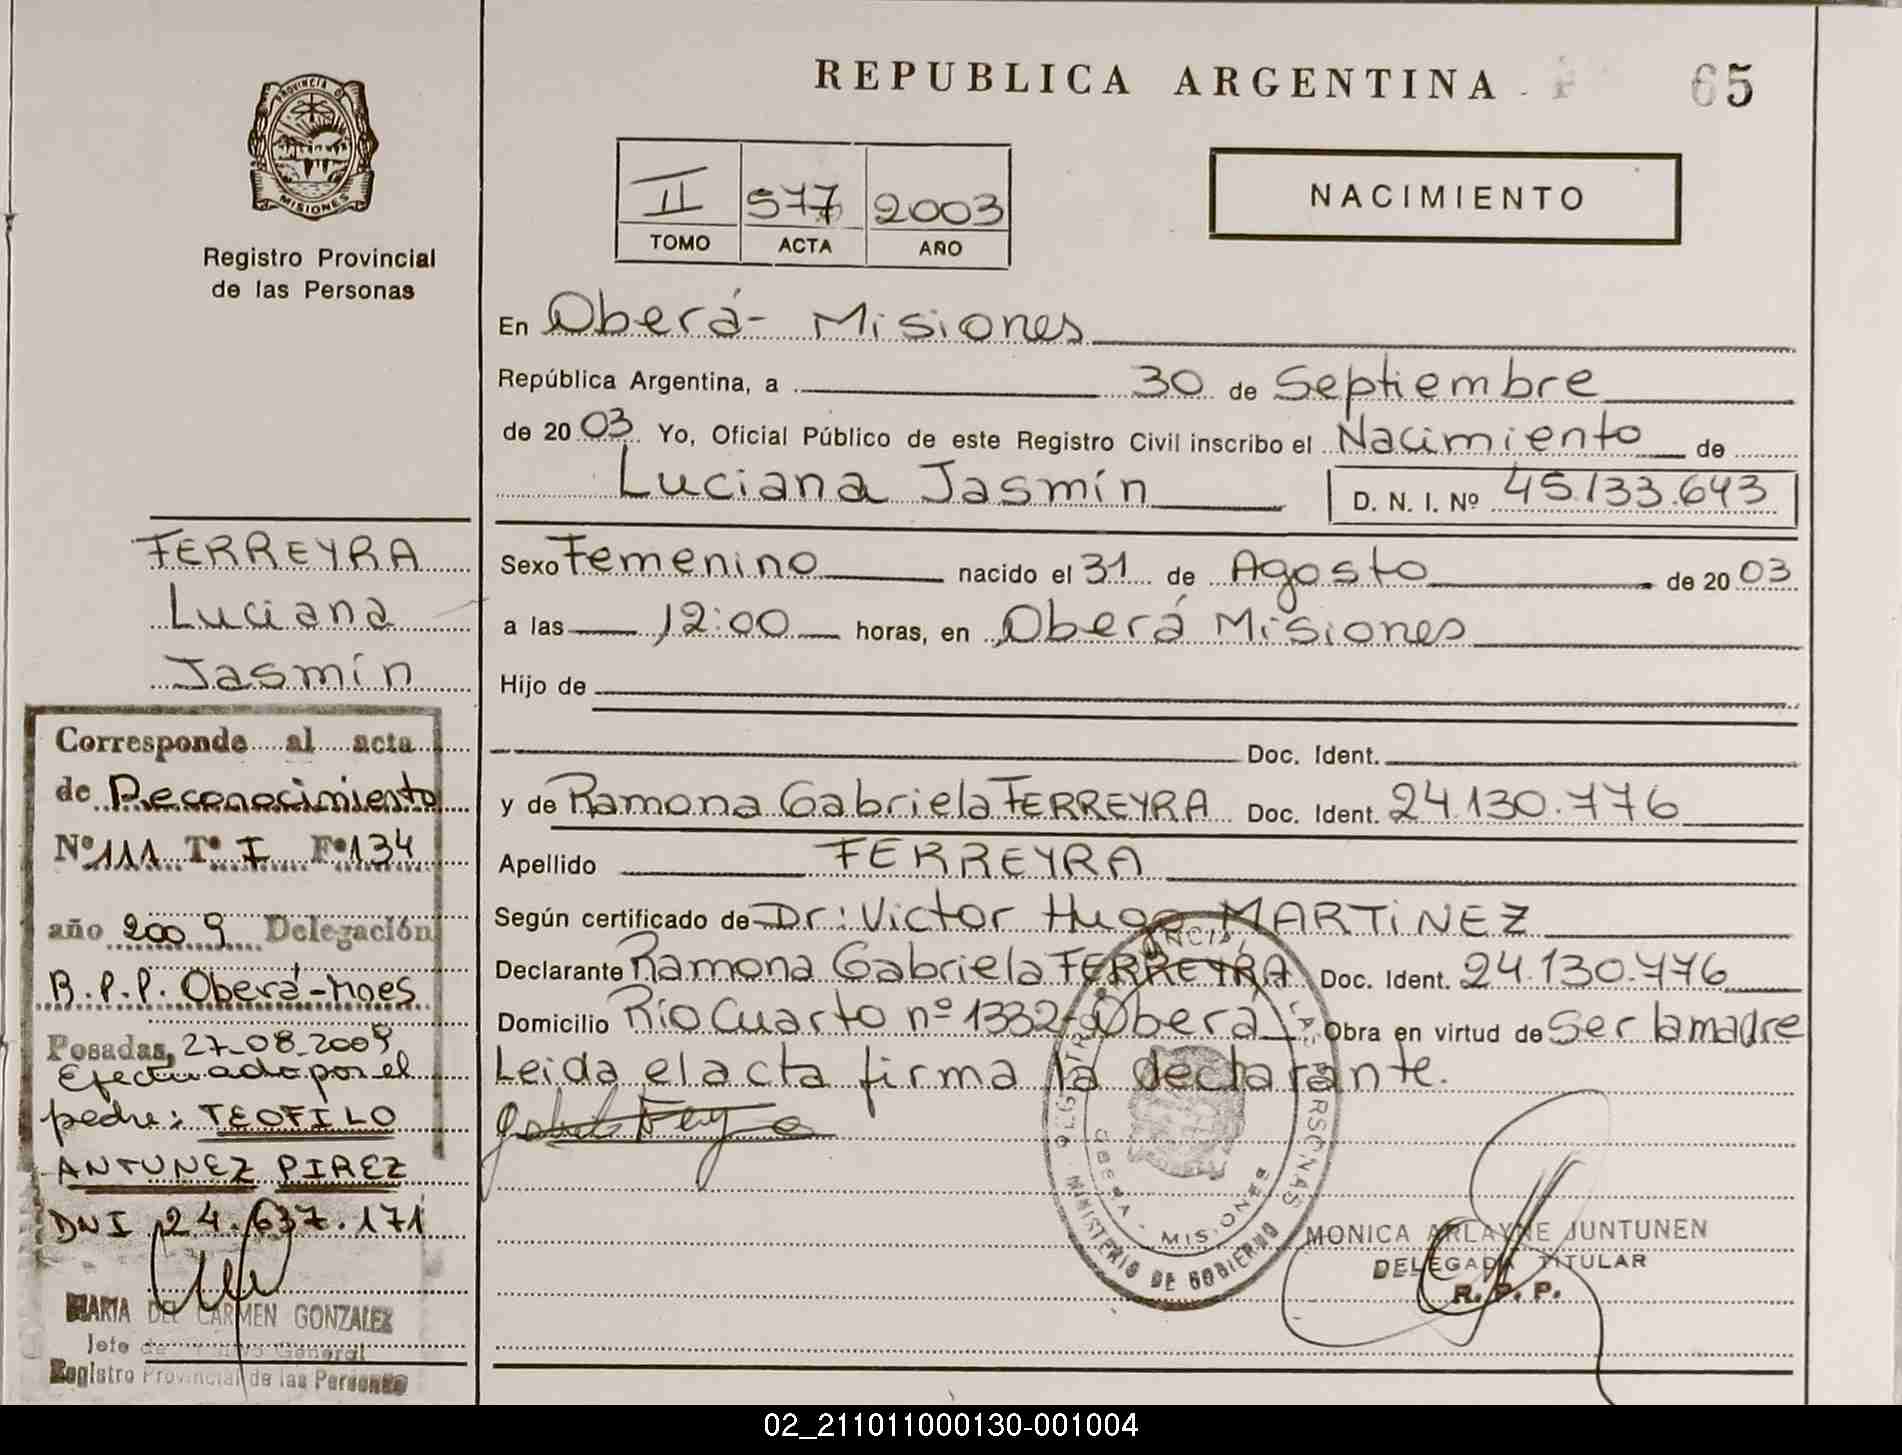 REPUBLICA ARGENTINA
65
PROVINCIA D
MISIONES
Registro Provincial
de las Personas
II 577 2003
TOMO ACTA AÑO
NACIMIENTO
En Oberá - Misiones
República Argentina, a 30 de Septiembre
de 2003 Yo, Oficial Público de este Registro Civil inscribo el Nacimiento de
Luciana Jasmín D. N. I. Nº 45.133.643
Sexo Femenino nacido el 31 de Agosto de 2003
a las 12:00 horas, en Oberá Misiones
Hijo de
Doc. Ident.
y de Ramona Gabriela FERREYRA Doc. Ident. 24.130.776
Apellido FERREYRA
Según certificado de Dr: Victor Hugo MARTiNEZ
Declarante Ramona Gabriela FERREYRA Doc. Ident. 24.130.776
Domicilio Río Cuarto nº 1332 - Oberá Obra en virtud de Ser la madre
Leida el acta firma la declarante.
MINISTERIO DE GOBIERNO
MISIONES
MONICA ARLAYNE JUNTUNEN
DELEGADA TITULAR
R. P. P.
FERREYRA
Luciana
Jasmín
Corresponde al acta
de Reconocimiento
Nº 111 Tº I Fº 134
año 2009 Delegación
R.P.P. Oberá-Mnes
Posadas, 27-08-2009
Efectuado por el
padre: TEOFILO
ANTUNEZ PIREZ
DNI 24.637.171
MARIA DEL CARMEN GONZALEZ
Jefe de General
Registro Provincial de las Personas
02_211011000130-001004